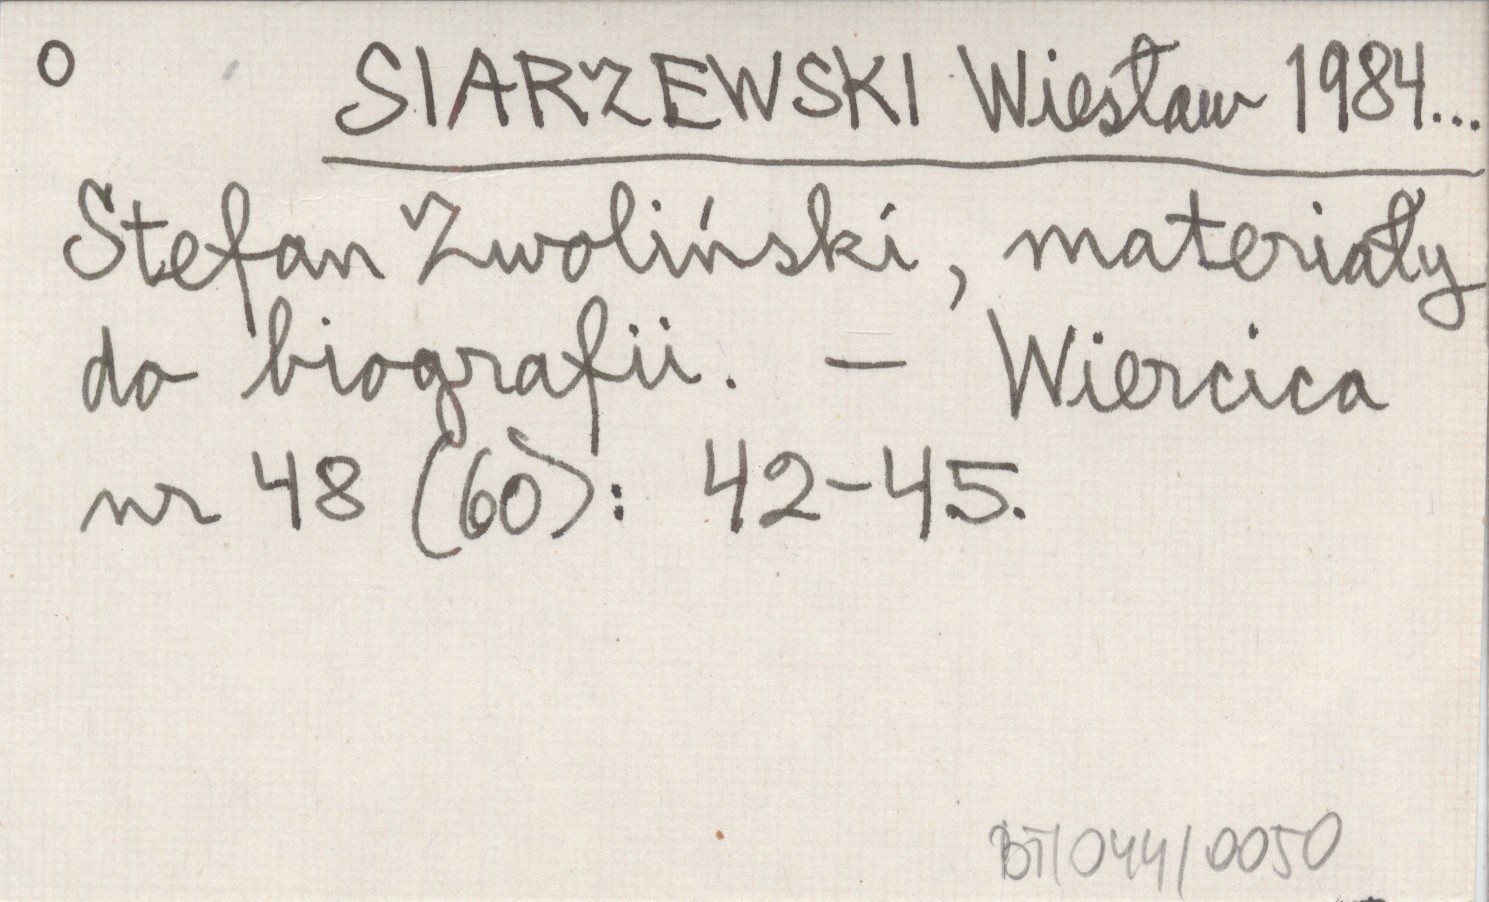 O SIARZEWSKI Wiesław 1984...
Stefan Zwoliński, materiały
do biografii. – Wiercica
nr 48 (60): 42-45.
BT/044/0050